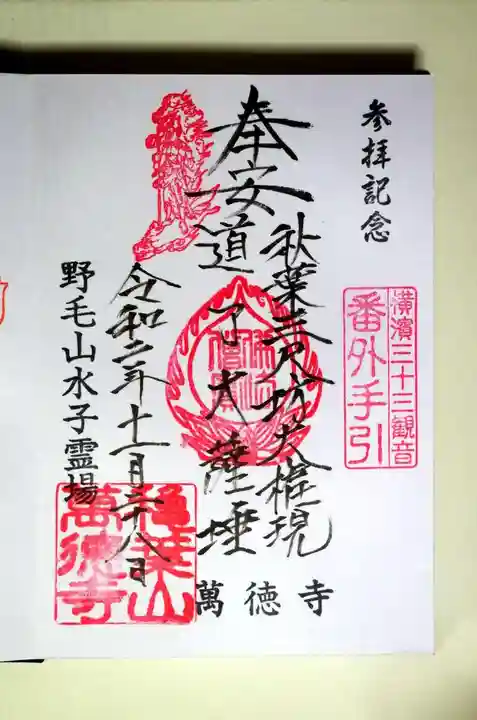 参拝記念
横濱三十三観音
番外手引
秋葉三尺坊大権現
奉安
道了大薩埵
萬徳寺
令和二年十一月二十八日
野毛山水子霊場
萬徳寺